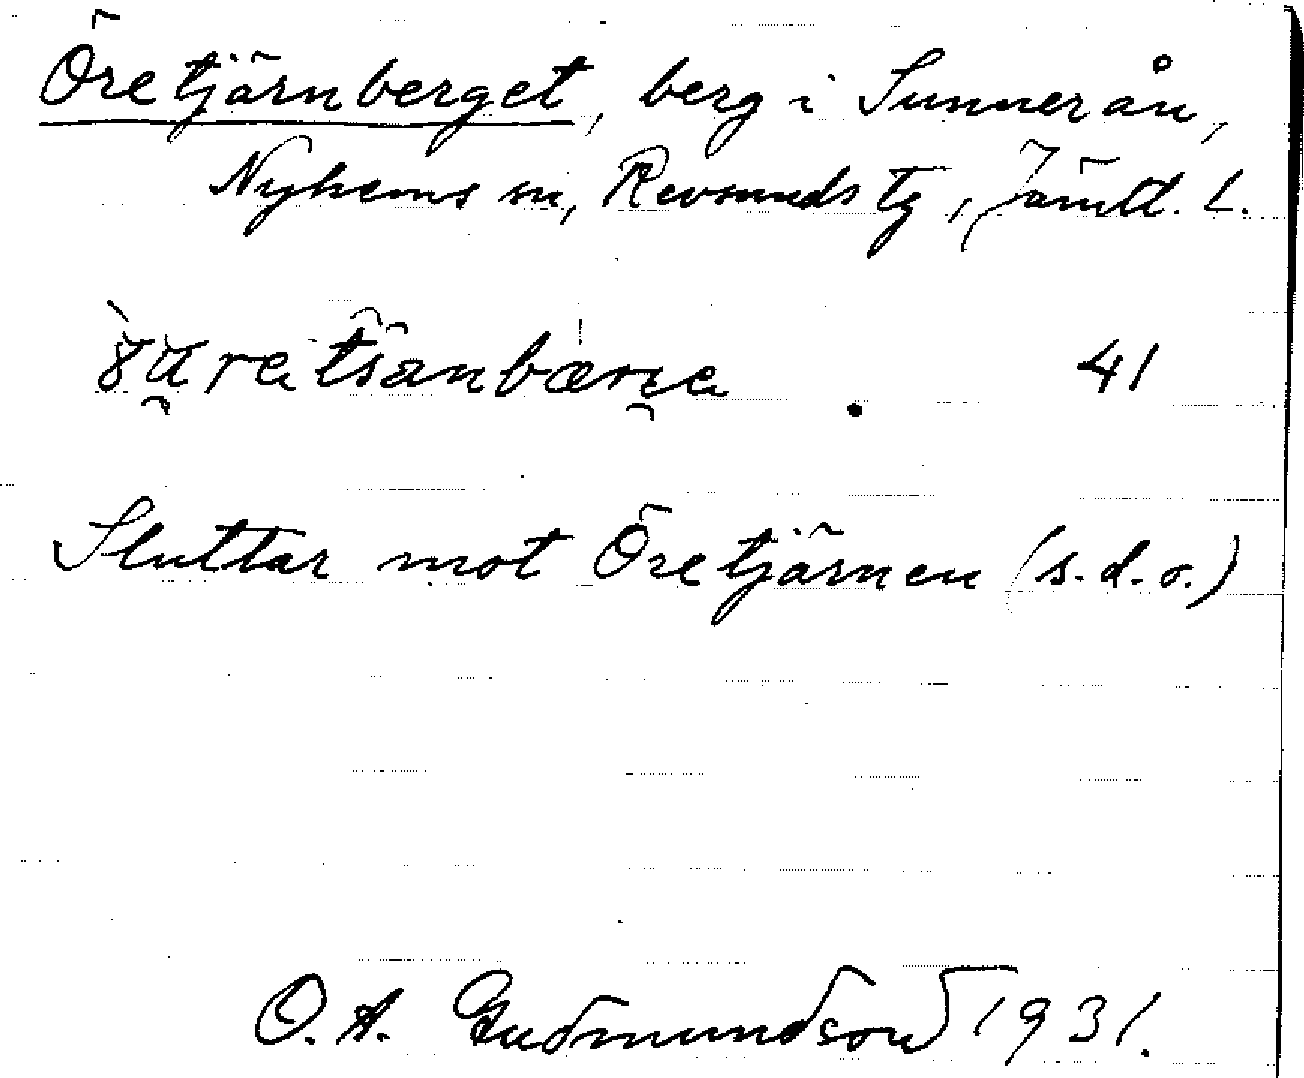 Öretjärnberget, berg i Sunnerån,
Nyhems sn, Revsunds tg, Jämtl. L.
41
Sluttar mot Öretjärnen (s.d.o.)
O. A. Gudmundson 1931.